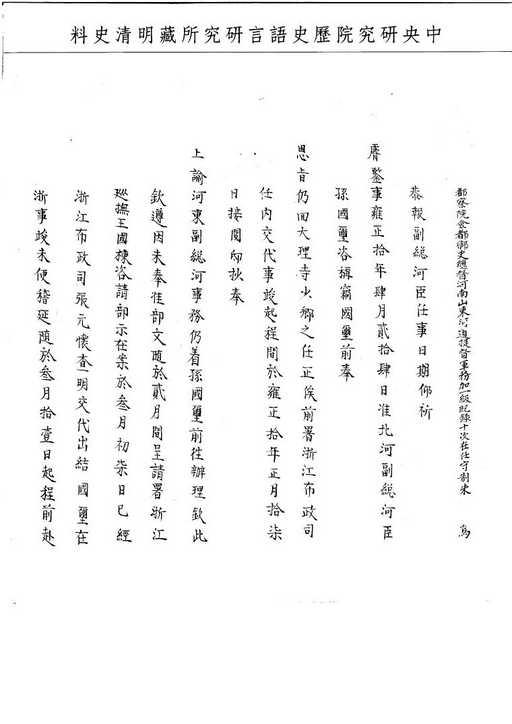 中央研究院歷史語言研究所藏明清史料
都察院僉都御史總督河南山東河道提督軍務加一級紀錄十次在任守制朱　爲
恭報副總河臣任事日期仰祈
睿鑒事雍正拾年肆月貳拾肆日准北河副總河臣
孫國璽咨稱竊國璽前奉
恩旨仍回大理寺少卿之任正俟前署浙江布政司
任內交代事竣起程間於雍正拾年正月拾柒
日接閱邸抄奉
上諭河東副總河事務仍着孫國璽前往辦理欽此
欽遵因未奉准部文隨於貳月間呈請署浙江
巡撫王國棟咨請部示在案於叁月初柒日已經
浙江布政司張元懷查明交代出結國璽在
浙事竣未便稽延隨於叁月拾壹日起程前赴